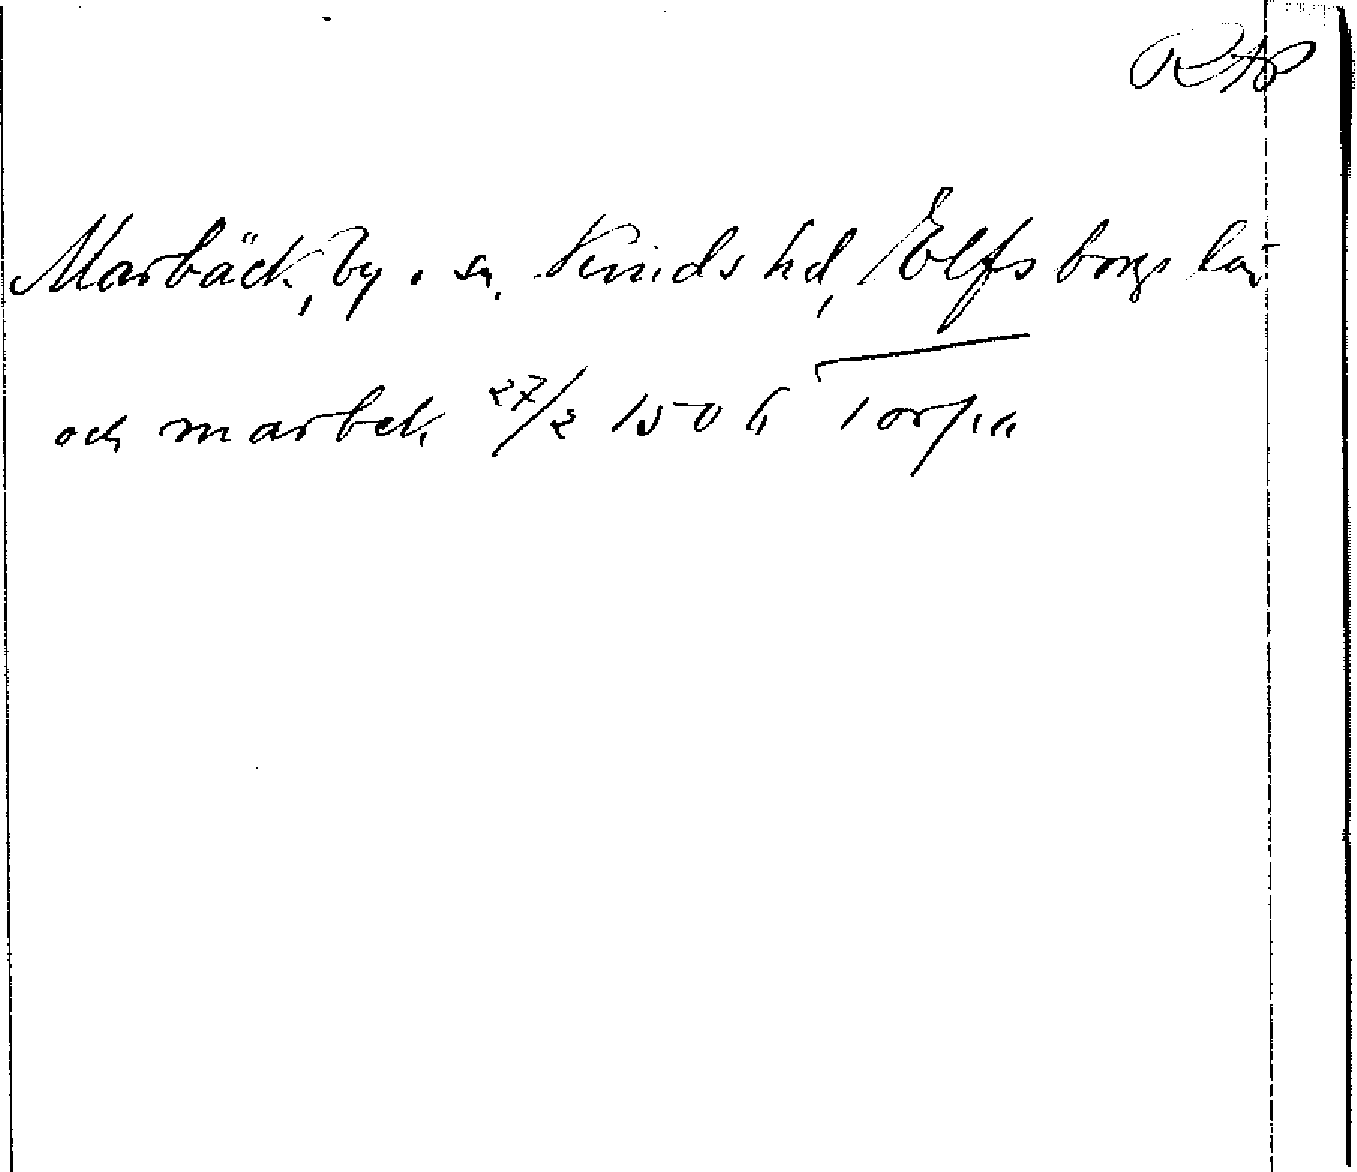 RAP
Marbäck, by o. sn, Kinds hd, Elfsborgs län
och marbek 27/2 1506 Torpa